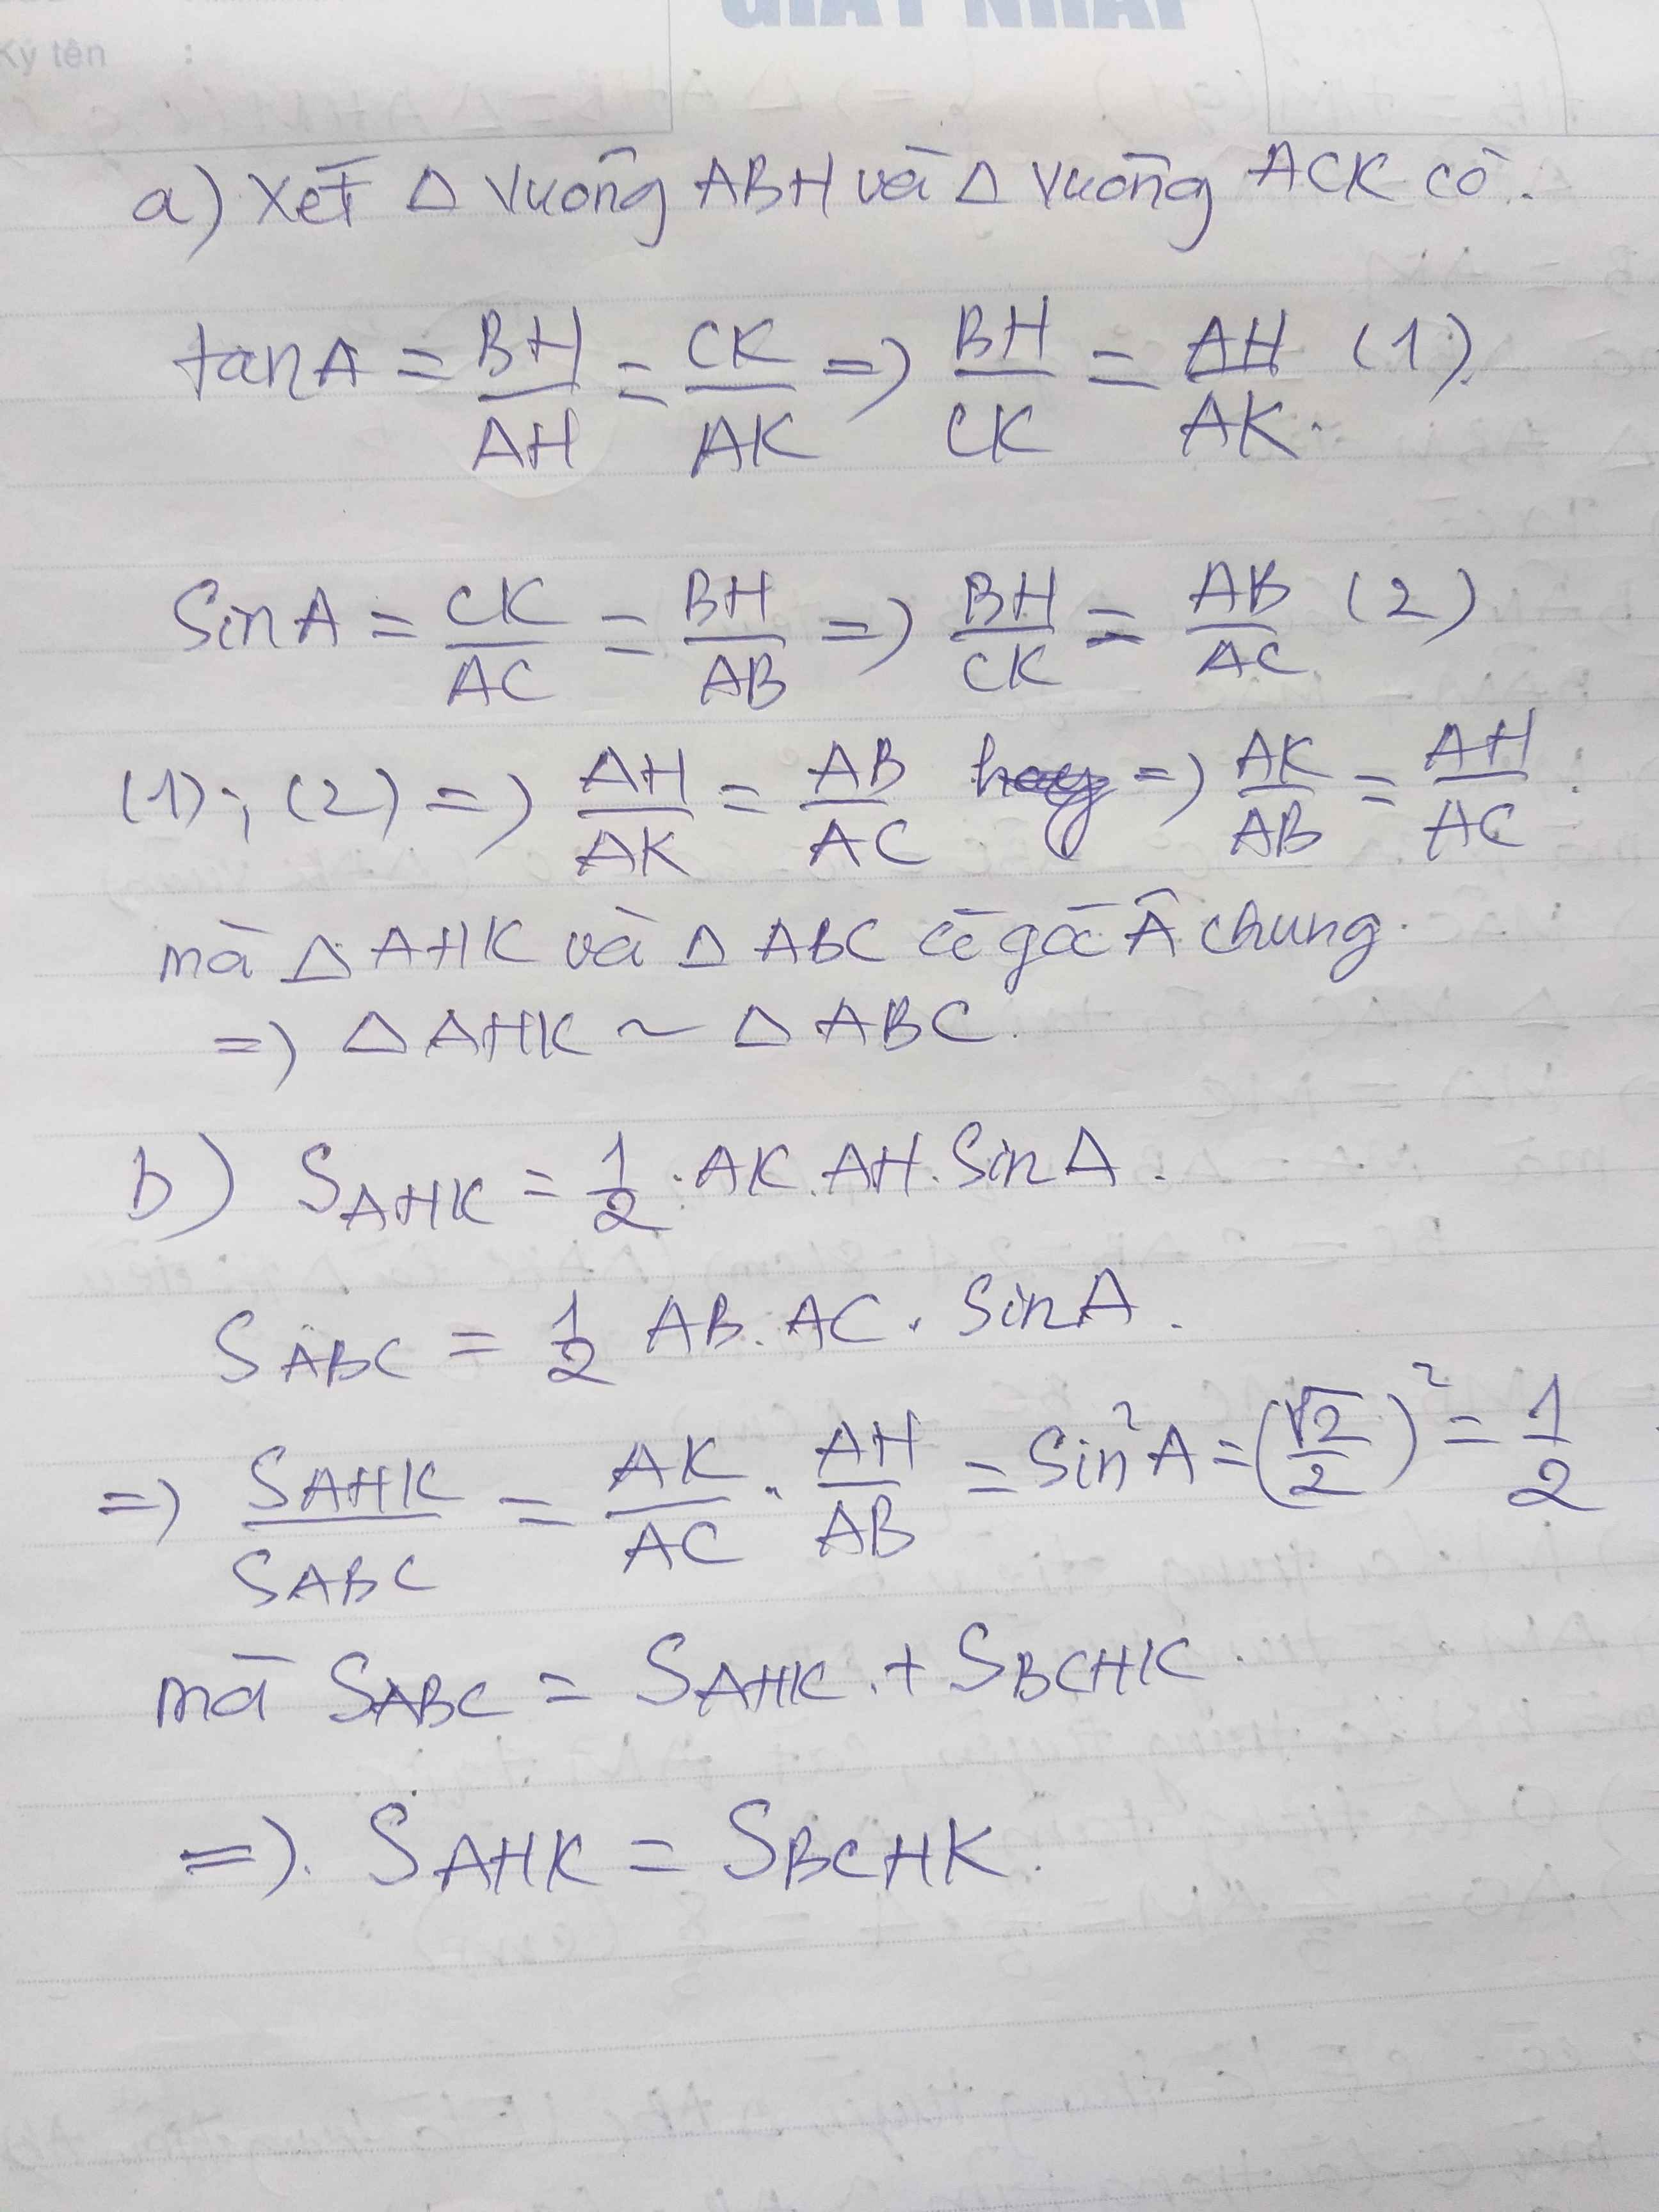 GIẤY NHÁP
Ký tên :
a) Xét Δ vuông ABH và Δ vuông ACK có.
tanA = BH/AH = CK/AK => BH/CK = AH/AK. (1)
SinA = CK/AC = BH/AB => BH/CK = AB/AC (2)
(1); (2) => AH/AK = AB/AC => AK/AB = AH/AC.
mà Δ AHK và Δ ABC có góc Â chung.
=> Δ AHK ~ Δ ABC.
b) S AHK = 1/2 . AK. AH. SinA.
S ABC = 1/2 AB. AC. SinA.
=> S AHK/S ABC = AK/AC . AH/AB = Sin²A = (√2/2)² = 1/2
mà S ABC = S AHK + S BCHK.
=>. S AHK = S BCHK.